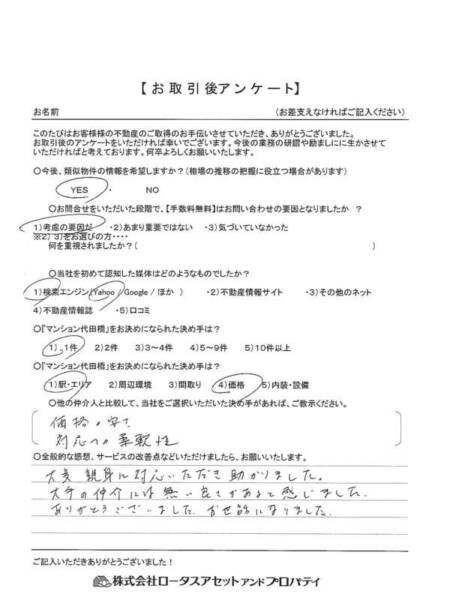 【お取引後アンケート】
お名前 (お差支えなければご記入ください)
このたびはお客様様の不動産のご取得のお手伝いさせていただき、ありがとうございました。
お取引後のアンケートをいただければ幸いでございます。今後の業務の研鑽や励ましにに生かさせて
いただければと考えております。何卒よろしくお願いいたします。
○今後、類似物件の情報を希望しますか？(相場の推移の把握に役立つ場合があります)
YES ・ NO
○お問合せをいただいた段階で、【手数料無料】はお問い合わせの要因となりましたか ？
1)考慮の要因だ ・2)あまり重要ではない ・3)気づいていなかった
※2) 3)をお選びの方・・・・
何を重視されましたか？( )
○当社を初めて認知した媒体はどのようなものでしたか？
1)検索エンジン(Yahoo / Google / ほか ) ・2)不動産情報サイト ・3)その他のネット
4)不動産情報誌 ・5)口コミ
○『マンション代田橋』をお決めになられた決め手は？
1)、1件 2)2件 3)3～4件 4)5～9件 5)10件以上
○『マンション代田橋』をお決めになられた決め手は？
1)駅・エリア 2)周辺環境 3)間取り 4)価格 5)内装・設備
○他の仲介人と比較して、当社をご選択いただいた決め手があれば、ご教示ください。
価格の安さ
対応への柔軟性
○全般的な感想、サービスの改善点などいただけましたら、お願いいたします。
大変親身に対応いただき助かりました。
大手の仲介には無い良さがあると感じました。
ありがとうございました。お世話になりました。
ご記入いただきありがとうございました！
株式会社ロータスアセットアンドプロパティ